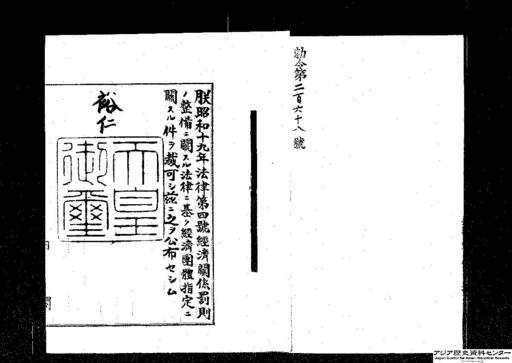 勅令第二百六十八號
朕昭和十九年法律第四號經濟關係罰則
ノ整備ニ關スル法律ニ基ク經濟團體指定ニ
關スル件ヲ裁可シ茲ニ之ヲ公布セシム
裕仁
天皇
御璽
アジア歴史資料センター
Japan Center for Asian Historical Records